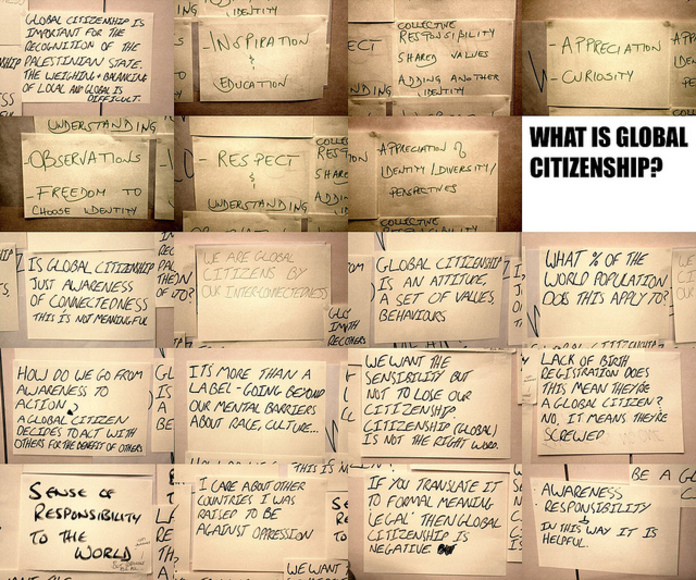 GLOBAL CITIZENSHIP IS
IMPORTANT FOR THE
RECOGNITION OF THE
PALESTINIAN STATE.
THE WEIGHING & BALANCING
OF LOCAL AND GLOBAL IS
DIFFICULT.
IDENTITY
- INSPIRATION
&
EDUCATION
COLLECTIVE
RESPONSIBILITY
SHARED VALUES
ADDING ANOTHER
IDENTITY
- APPRECIATION
- CURIOSITY
UNDERSTANDING
- OBSERVATIONS
- FREEDOM TO
CHOOSE IDENTITY
- RESPECT
&
UNDERSTANDING
APPRECIATION OF
IDENTITY / DIVERSITY /
PERSPECTIVES
COLLECTIVE
WHAT IS GLOBAL
CITIZENSHIP?
IS GLOBAL CITIZENSHIP
JUST AWARENESS
OF CONNECTEDNESS
THIS IS NOT MEANINGFUL
WE ARE GLOBAL
CITIZENS BY
OUR INTER-CONNECTEDNESS
GLOBAL CITIZENSHIP
IS AN ATTITUDE,
A SET OF VALUES,
BEHAVIOURS
WHAT % OF THE
WORLD POPULATION
DOES THIS APPLY TO?
HOW DO WE GO FROM
AWARENESS TO
ACTION?
A GLOBAL CITIZEN
DECIDES TO ACT WITH
OTHERS FOR THE BENEFIT OF OTHERS
ITS MORE THAN A
LABEL - GOING BEYOND
OUR MENTAL BARRIERS
ABOUT RACE, CULTURE...
WE WANT THE
SENSIBILITY BUT
NOT TO LOSE OUR
CITIZENSHIP.
CITIZENSHIP (GLOBAL)
IS NOT THE RIGHT WORD.
LACK OF BIRTH
REGISTRATION DOES
THIS MEAN THEY'RE
A GLOBAL CITIZEN?
NO, IT MEANS THEY'RE
SCREWED
SENSE OF
RESPONSIBILITY
TO THE
WORLD
I CARE ABOUT OTHER
COUNTRIES I WAS
RAISED TO BE
AGAINST OPRESSION
WE WANT
IF YOU TRANSLATE IT
TO FORMAL MEANING
'LEGAL' THEN GLOBAL
CITIZENSHIP IS
NEGATIVE
BE A
AWARENESS
RESPONSIBILITY
IN THIS WAY IT IS
HELPFUL.